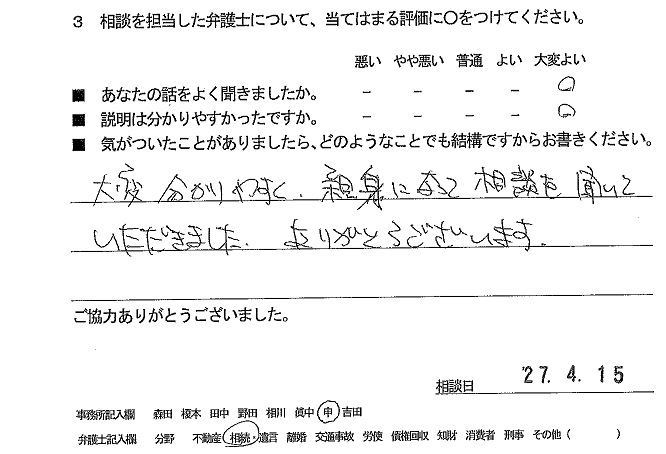 3 相談を担当した弁護士について、当てはまる評価に〇をつけてください。
悪い やや悪い 普通 よい 大変よい
■ あなたの話をよく聞きましたか。 － － － － 〇
■ 説明は分かりやすかったですか。 － － － － 〇
■ 気がついたことがありましたら、どのようなことでも結構ですからお書きください。
大変分かりやすく、親身になって相談を聞いて
いただきました。ありがとうございます。
ご協力ありがとうございました。
相談日 '27. 4. 15
事務所記入欄 森田 榎本 田中 野田 相川 眞中 申 吉田
弁護士記入欄 分野 不動産 相続・遺言 離婚 交通事故 労使 債権回収 知財 消費者 刑事 その他（ ）